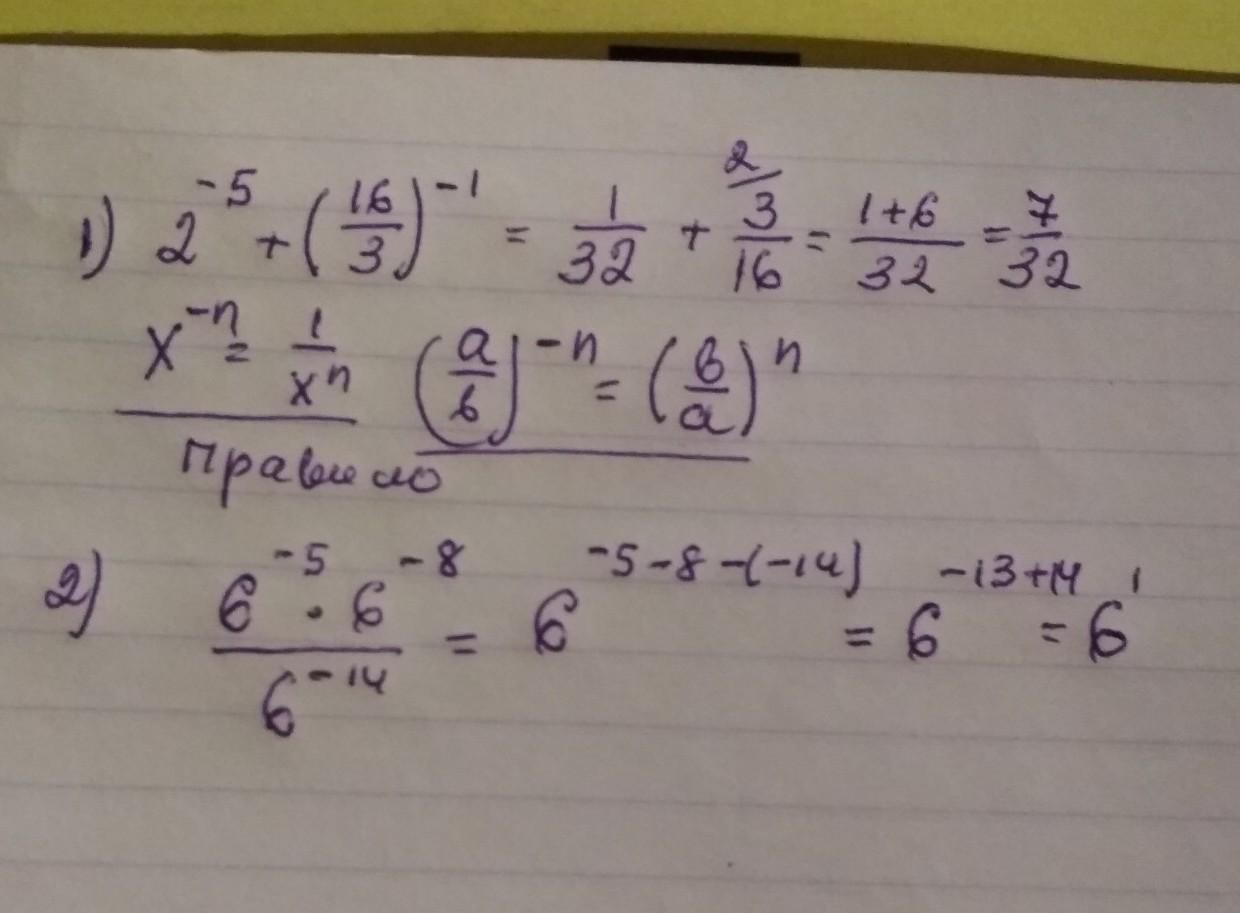 1) 2^{-5} + (16/3)^{-1} = 1/32 + 2/ 3/16 = 1+6/32 = 7/32
x^{-n} = 1/x^n (a/b)^{-n} = (b/a)^n
Правило
2) 6^{-5} · 6^{-8} / 6^{-14} = 6^{-5-8-(-14)} = 6^{-13+14} = 6^1